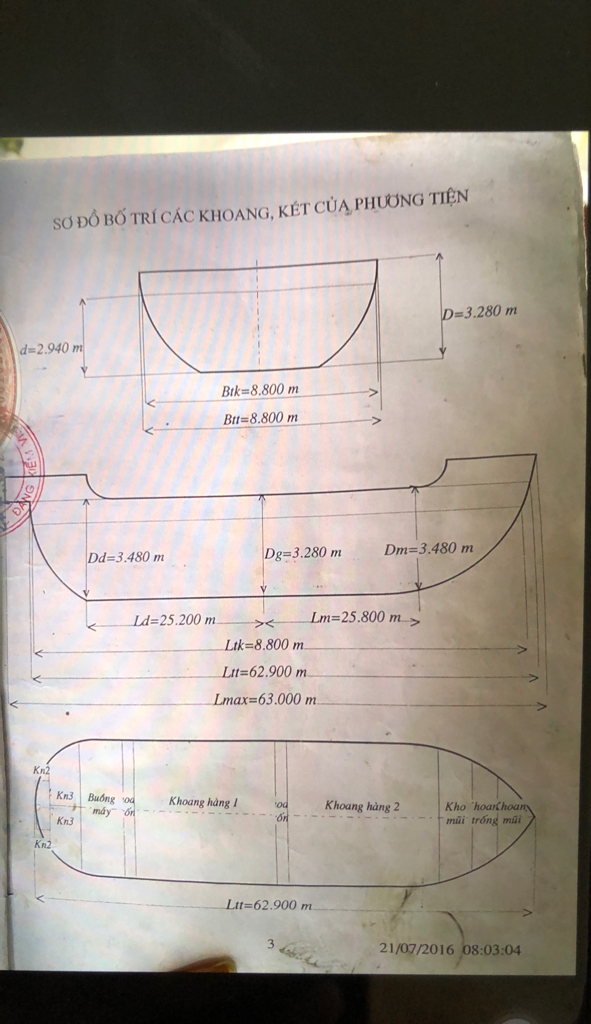 SƠ ĐỒ BỐ TRÍ CÁC KHOANG, KÉT CỦA PHƯƠNG TIỆN
D=3.280 m
d=2.940 m
Btk=8.800 m
Btt=8.800 m
ĐĂNG KIỂM
Dd=3.480 m
Dg=3.280 m
Dm=3.480 m
Ld=25.200 m
Lm=25.800 m
Ltk=8.800 m
Ltt=62.900 m
Lmax=63.000 m
Kn2
Kn3
Kn3
Kn2
Buồng
máy
Khoang hàng 1
Khoang hàng 2
Kho
mũi
trống
Khoan
mũi
Ltt=62.900 m
3
21/07/2016 08:03:04